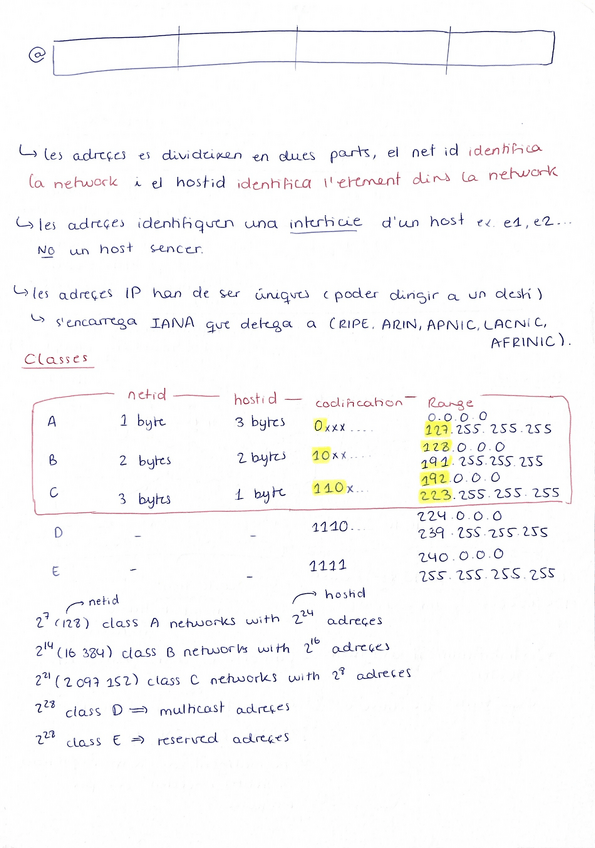 @
↳ les adreçes es divideixen en dues parts, el net id identifica
la network i el hostid identifica l'element dins la network
↳ les adreçes identifiquen una interficie d'un host ex. e1, e2...
NO un host sencer.
↳ les adreçes IP han de ser úniques (poder dirigir a un destí)
↳ s'encarrega IANA que delega a (RIPE, ARIN, APNIC, LACNIC,
AFRINIC).
Classes
netid hostid codification Range
A 1 byte 3 bytes 0xxx.... 0.0.0.0
127.255.255.255
B 2 bytes 2 bytes 10xx.... 128.0.0.0
191.255.255.255
C 3 bytes 1 byte 110x... 192.0.0.0
223.255.255.255
D - - 1110... 224.0.0.0
239.255.255.255
E - - 1111 240.0.0.0
255.255.255.255
netid hostid
2^7 (128) class A networks with 2^24 adreçes
2^14 (16 384) class B networks with 2^16 adreçes
2^21 (2 097 152) class C networks with 2^8 adreçes
2^28 class D => multicast adreçes
2^28 class E => reserved adreçes